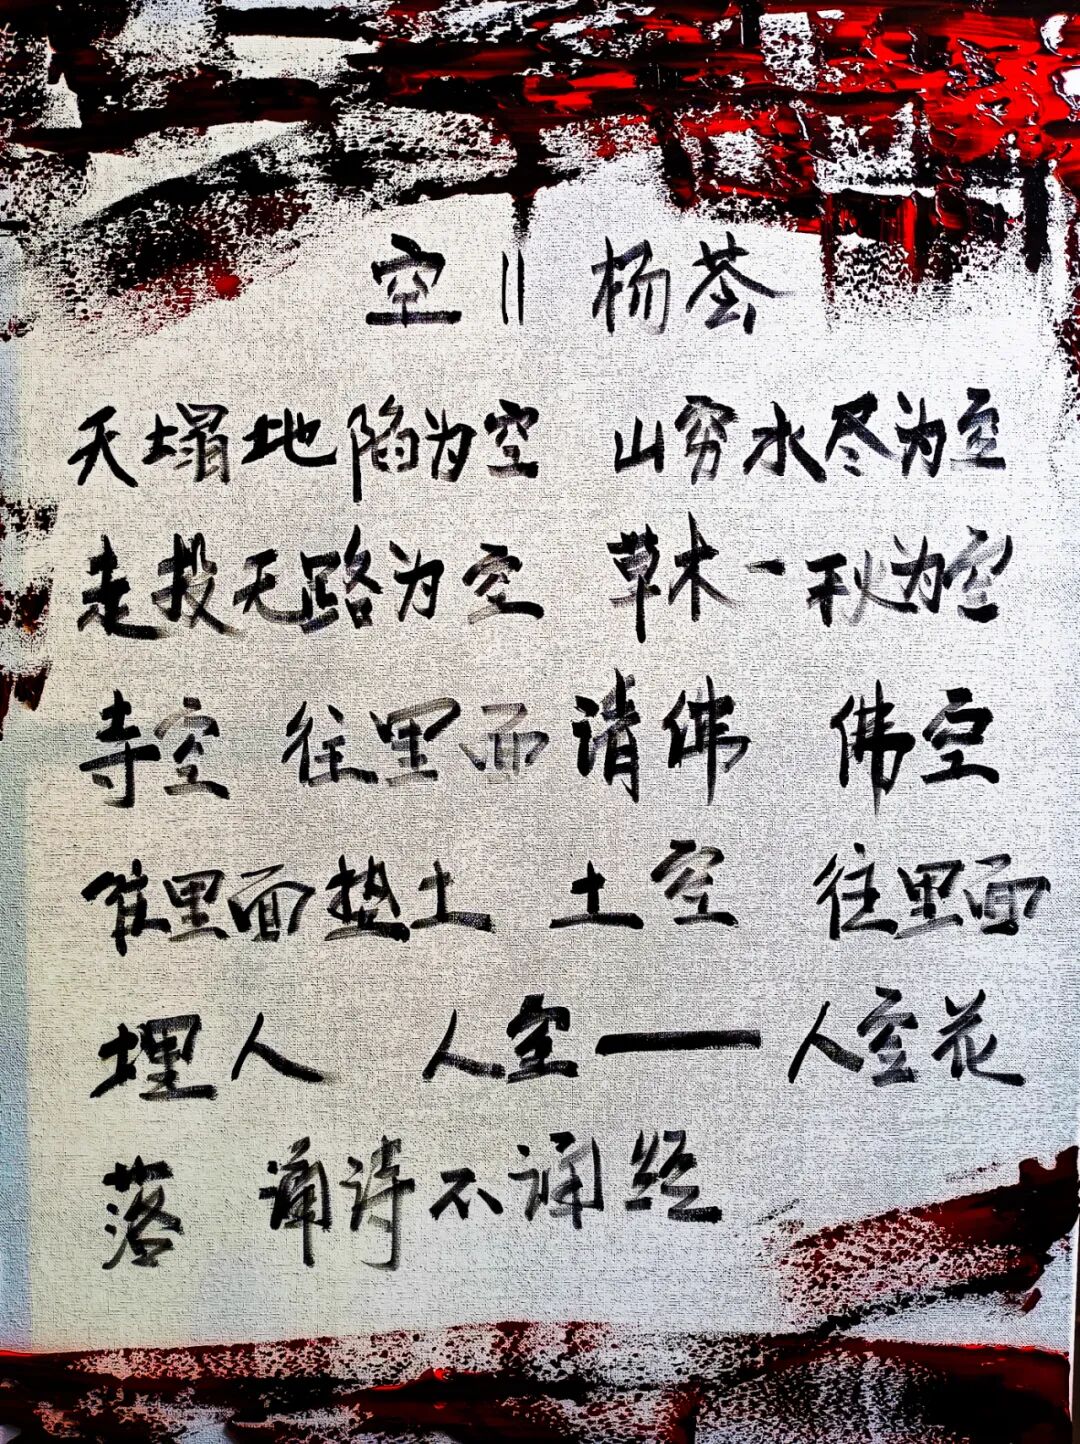 空 || 杨荟
天塌地陷为空 山穷水尽为空
走投无路为空 草木一秋为空
寺空 往里面请佛 佛空
往里面垫土 土空 往里面
埋人 人空——人空花
落 诵诗不诵经